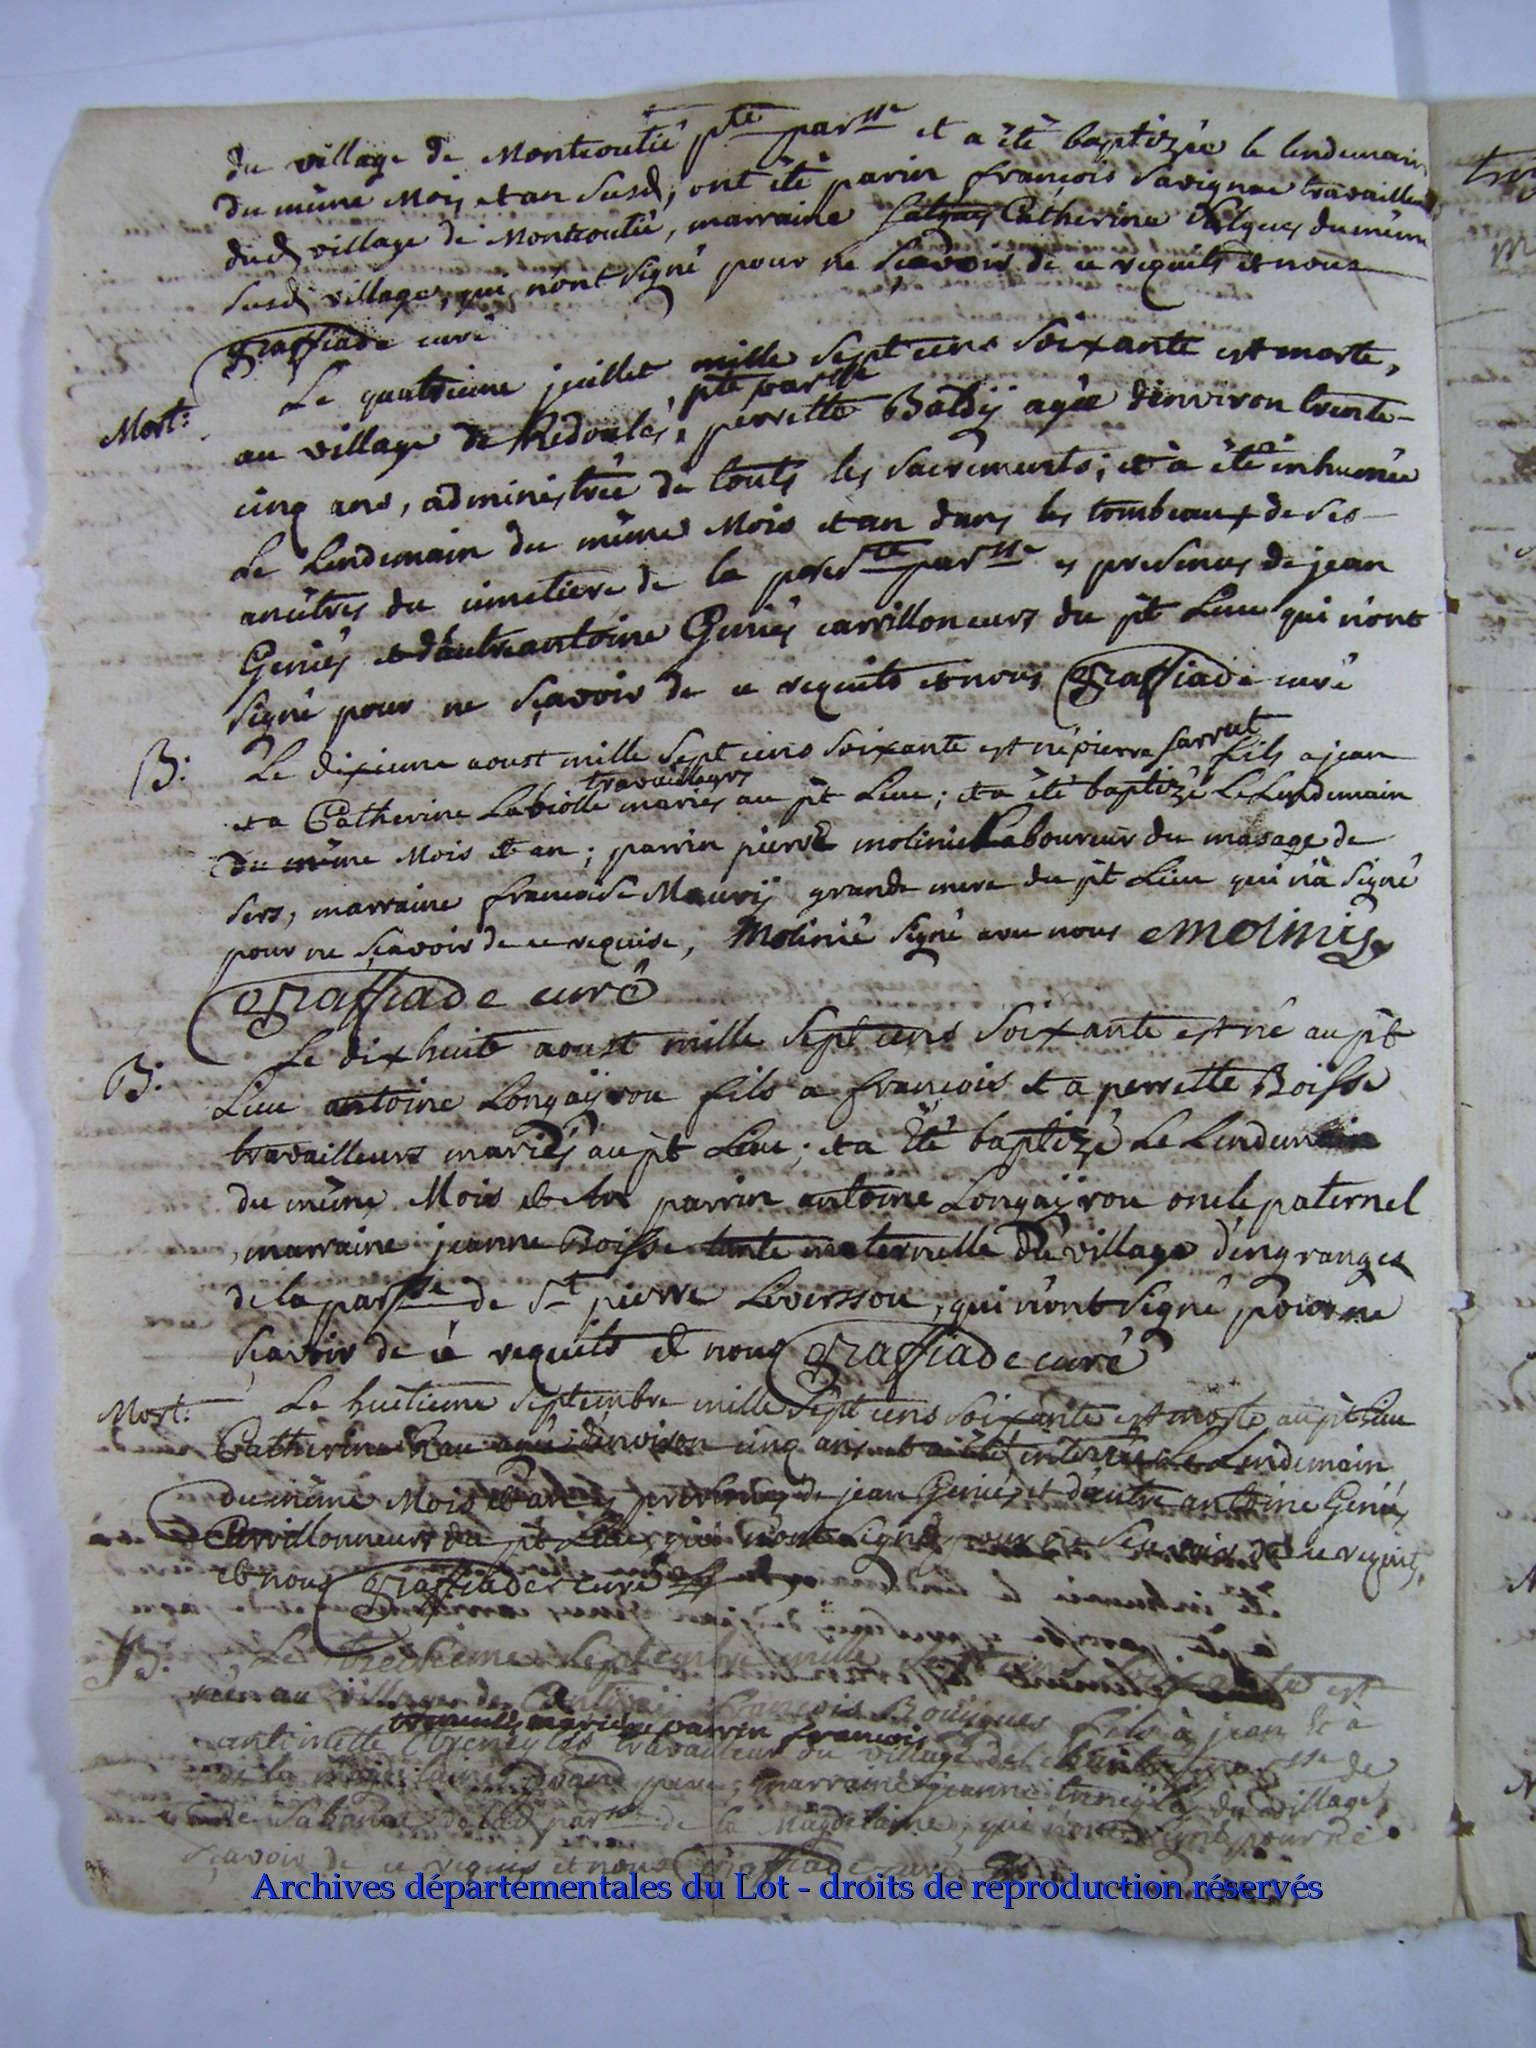 du village de Montcoutié pte parsse et a été baptizée le lendemain
du même Mois et an susd, ont été parin françois Savignac travailleur
dud village de Montcoutié, marraine Catherine Salgues du même
susd village, qui n'ont signé pour ne sçavoir de ce requits et nous
Graffiade curé
Mort: Le quatrieme juillet mille sept cens soixante est morte,
au village de Redoulés, pte parsse perrette Baldÿ agée d'environ trente
cinq ans, administrée de touts les sacrements; et à été inhumée
Le Lendemain du même Mois et an dans les tombeaux de ses
ancêtres du cimetiere de la presente parsse es presences de jean
Geniés et d'autre antoine Geniés carrillonneurs du pt Lieu qui n'ont
signé pour ne sçavoir de ce requits et nous Graffiade curé
B: Le dixieme aoust mille sept cens soixante est né pierre Sarrut fils a jean
et a Catherine Labiolle travailleurs mariés au pt Lieu; et a été baptizé Le Lendemain
du même Mois et an; parrin pierre molinié Laboureur du masage de
Sers, marraine françoise Maurÿ grande mere du pt Lieu qui n'a signé
pour ne sçavoir de ce requise, Molinié signé avec nous Molinié
Graffiade curé
B: Le dixhuit aoust mille sept cens soixante est né au pt
Lieu antoine Longaÿrou fils a françois et a perrette Boisse
travailleurs mariés au pt Lieu; et a été baptizé Le Lendemain
du même Mois et An parrin antoine Longaÿrou oncle paternel
marraine jeanne Boisse tante maternelle du village d'engranges
de la parsse de St pierre Liversou, qui n'ont signé pour ne
sçavoir de ce requits et nous Graffiade curé
Mort: Le huitieme septembre mille sept cens soixante est morte au pt Lieu
Catherine agée d'environ cinq ans et a été enterrée Le Lendemain
du même Mois et an es presences de jean Geniés et d'autre antoine Geniés
Carrillonneurs du pt Lieu, qui n'ont signé pour ne sçavoir de ce requits,
et nous Graffiade curé
B: Le treisieme septembre mille sept cens soixante est
né au village de françois Bouÿgues fils à jean et à
antoinette travailleurs mariés parrin françois
travailleur du village de parsse de
la Magdelaine grand pere; marraine jeanne du village
de de lad parsse de la Magdelaine, qui n'ont signé pour ne
sçavoir de ce requis et nous Graffiade curé
Archives départementales du Lot - droits de reproduction réservés